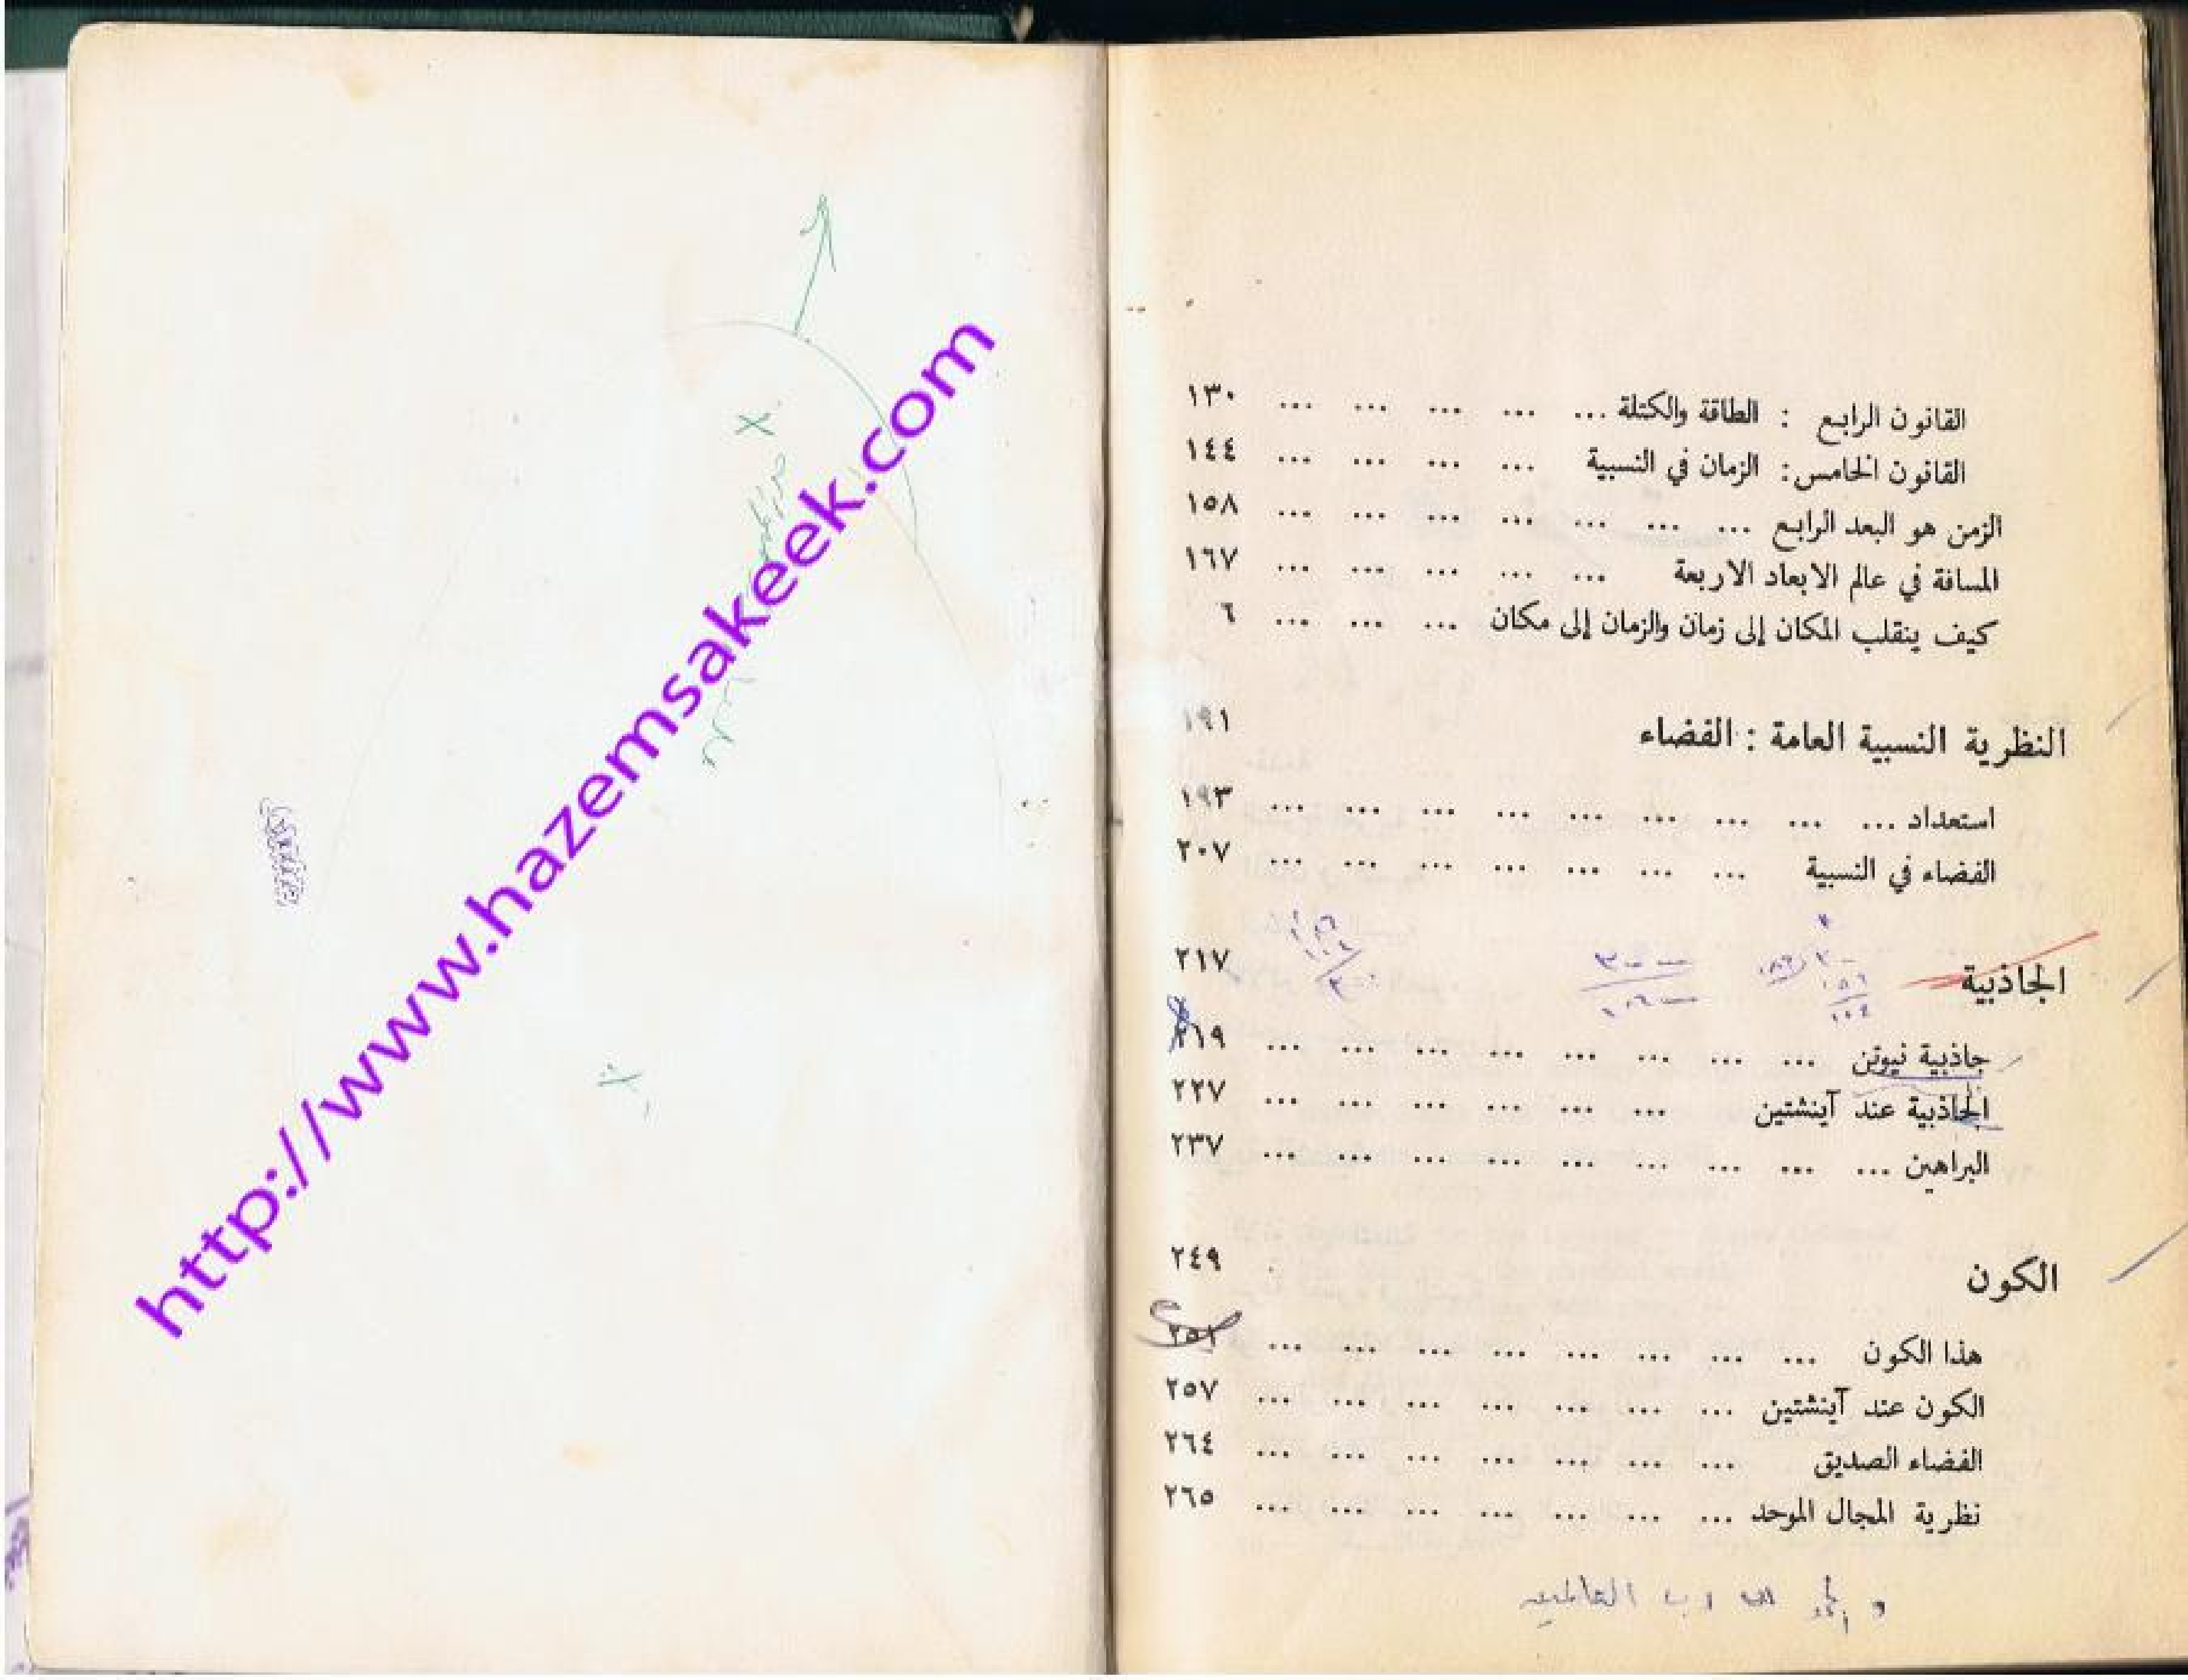 القانون الرابع : الطاقة والكتلة ... ... ... ... ... ١٣٠
القانون الخامس : الزمان في النسبية ... ... ... ... ١٤٤
الزمن هو البعد الرابع ... ... ... ... ... ... ... ١٥٨
المسافة في عالم الابعاد الاربعة ... ... ... ... ... ١٦٧
كيف ينقلب المكان إلى زمان والزمان إلى مكان ... ... ... ٦
النظرية النسبية العامة : الفضاء ١٩١
استعداد ... ... ... ... ... ... ... ... ... ١٩٣
الفضاء في النسبية ... ... ... ... ... ... ... ٢٠٧
الجاذبية ٢١٧
جاذبية نيوتن ... ... ... ... ... ... ... ... ٢١٩
الجاذبية عند آينشتين ... ... ... ... ... ... ٢٢٧
البراهين ... ... ... ... ... ... ... ... ... ٢٣٧
الكون ٢٤٩
هذا الكون ... ... ... ... ... ... ... ... ٢٥١
الكون عند آينشتين ... ... ... ... ... ... ... ٢٥٧
الفضاء الصديق ... ... ... ... ... ... ... ٢٦٤
نظرية المجال الموحد ... ... ... ... ... ... ... ٢٦٥
الله رب العالمين
http://www.hazemsakeek.com